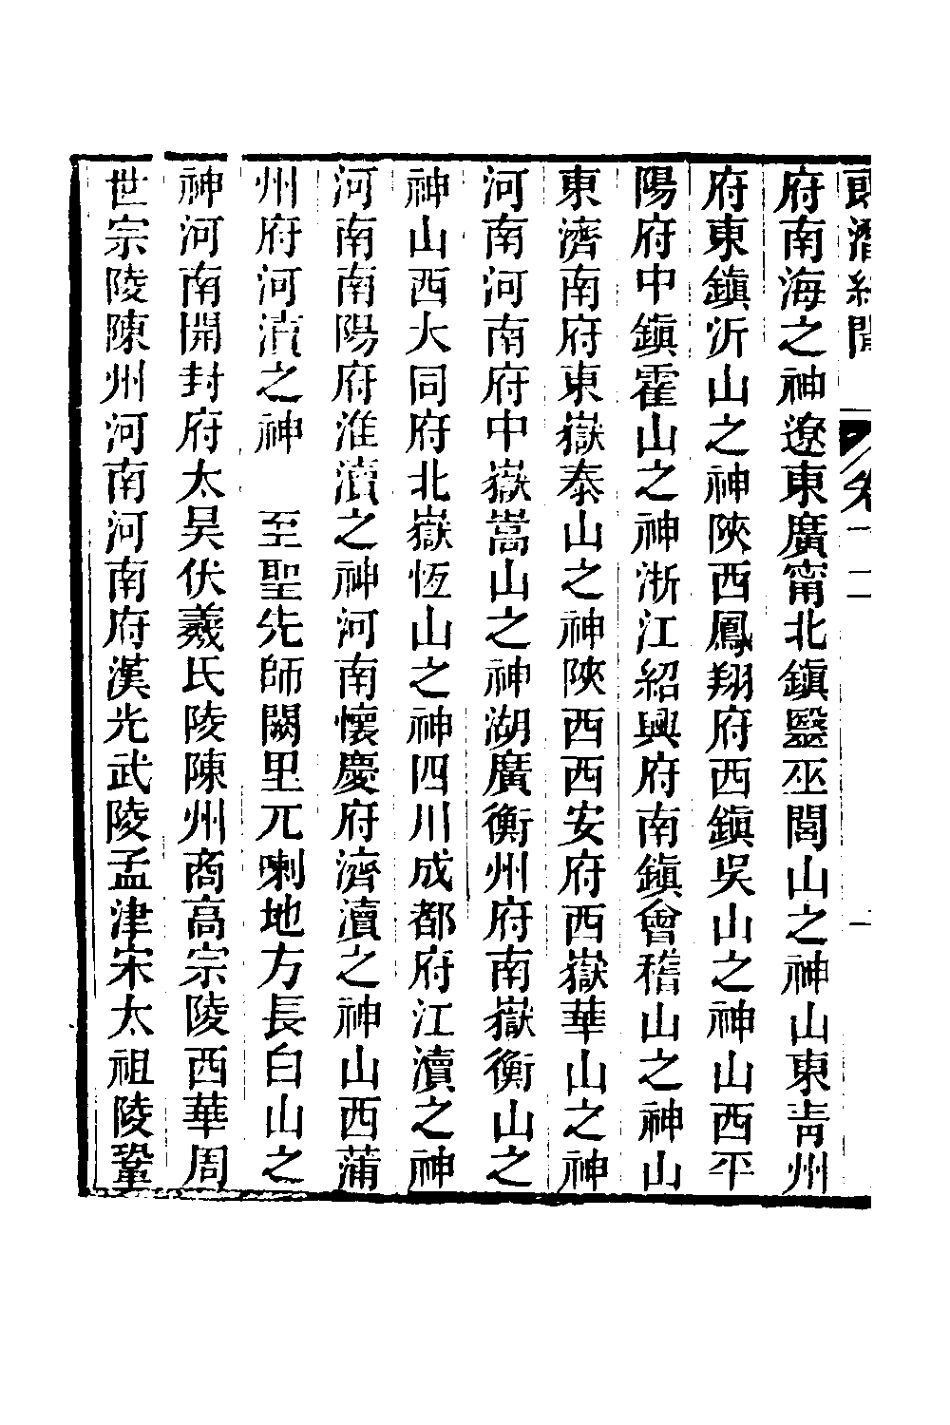 郎潛紀聞 卷十二 一
府南海之神遼東廣甯北鎮毉巫閭山之神山東青州
府東鎮沂山之神陝西鳳翔府西鎮吳山之神山西平
陽府中鎮霍山之神浙江紹興府南鎮會稽山之神山
東濟南府東嶽泰山之神陝西西安府西嶽華山之神
河南河南府中嶽嵩山之神湖廣衡州府南嶽衡山之
神山西大同府北嶽恆山之神四川成都府江瀆之神
河南南陽府淮瀆之神河南懷慶府濟瀆之神山西蒲
州府河瀆之神 至聖先師闕里兀喇地方長白山之
神河南開封府太昊伏羲氏陵陳州商高宗陵西華周
世宗陵陳州河南河南府漢光武陵孟津宋太祖陵鞏